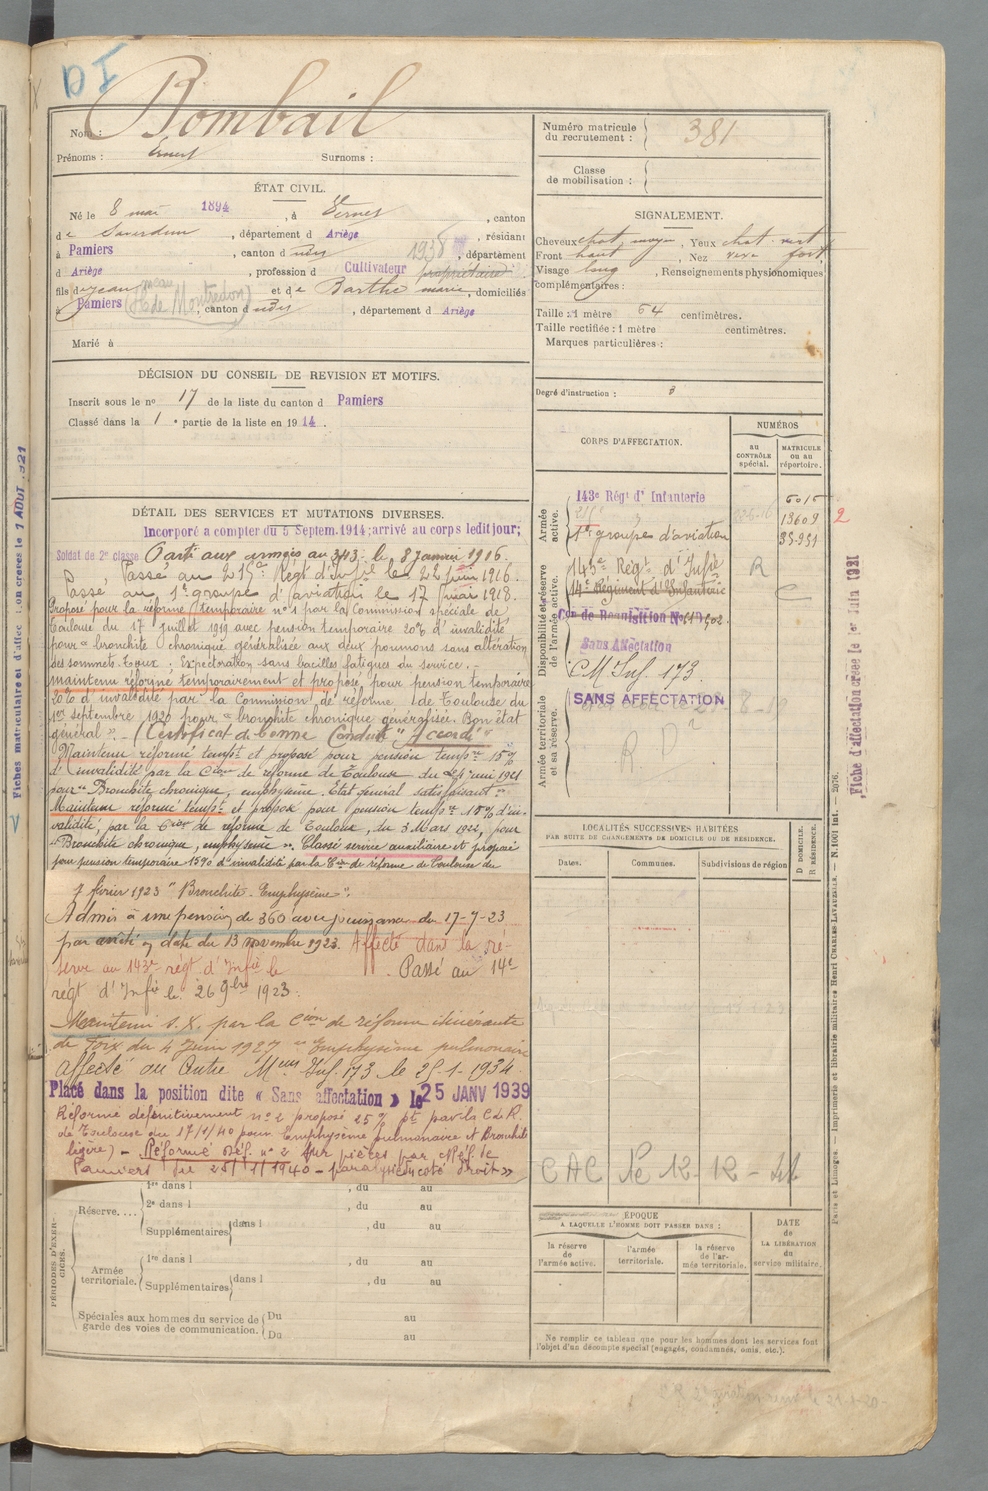 DI
Nom : Bombail
Prénoms : Ernest Surnoms :
Numéro matricule du recrutement : 381
Classe de mobilisation :
ÉTAT CIVIL.
Né le 8 mai 1894, à Vernet, canton
de Saverdun, département d Ariège, résidant
à Pamiers, canton d udit 1938, département
d Ariège, profession d Cultivateur propriétaire
fils de Jean et de Barthe marie, domiciliés
à Pamiers (de Montredon), canton d udit, département d Ariège
Marié à
SIGNALEMENT.
Cheveux chat. moyen, Yeux chat. vert
Front haut, Nez fort
Visage long, Renseignements physionomiques
complémentaires :
Taille : 1 mètre 64 centimètres.
Taille rectifiée : 1 mètre centimètres.
Marques particulières :
Degré d'instruction : 3
DÉCISION DU CONSEIL DE REVISION ET MOTIFS.
Inscrit sous le no 17 de la liste du canton d Pamiers
Classé dans la 1e partie de la liste en 1914.
DÉTAIL DES SERVICES ET MUTATIONS DIVERSES.
Incorporé a compter du 5 Septem.1914; arrivé au corps ledit jour;
Soldat de 2e classe Parti aux armées au 343e le 8 Janvier 1916.
Passé au 215e Régt d'Infie le 22 juin 1916.
Passé au 1er groupe d'aviation le 17 mai 1918.
Proposé pour la réforme temporaire no 1 par la Commission spéciale de
Toulouse du 17 juillet 1919 avec pension temporaire 20% d'invalidité
pour "bronchite chronique généralisée aux deux poumons sans altération
des sommets. Toux, expectoration sans bacilles fatigues du service.-
maintenu réformé temporairement et proposé pour pension temporaire
20% d'invalidité par la Commission de réforme de Toulouse du
1er septembre 1920 pour "bronchite chronique généralisée. Bon état
général". - (Certificat de bonne Conduite "Accordé"
Maintenu réformé tempre et proposé pour pension tempre 15%
d'invalidité par la Cion de réforme de Toulouse du mai 1921
pour "Bronchite chronique, emphysème. Etat général satisfaisant"
Maintenu réformé tempre et proposé pour pension tempre 15% d'in-
validité, par la Cion de réforme de Toulouse, du 3 Mars 1922, pour
"Bronchite chronique, emphysème". Classé service auxiliaire et proposé
pour pension temporaire 15% d'invalidité par la Cion de réforme de Toulouse du
7 février 1923 "Bronchite - Emphysème".
Admis à une pension de 360 avec jouissance du 17-7-23
par arrêté en date du 13 novembre 1923. Affecté dans la ré-
serve au 143e régt d'Infie le . Passé au 14e
régt d'Infie le 26 9bre 1923.
Maintenu S.X. par la Cion de réforme itinérante
de Foix du 4 Juin 1927 "Emphysème pulmonaire
affecté au Centre Meur Inf. 173 le 25-1-1934.
Placé dans la position dite « Sans affectation » le 25 JANV 1939
Réformé définitivement no 2 proposé 25% pt par la C d R.
de Toulouse du 17/1/40 pour Emphysème pulmonaire et Bronchite
légère) - Réformé Déf. no 2 sur pièces par
Pamiers du 25/1/1940 - paralysie coté droit »
CORPS D'AFFECTATION.
NUMÉROS
au CONTRÔLE spécial.
MATRICULE ou au répertoire.
Armée active.
143e Régt d'Infanterie 6015
215e 13609 2
1er groupe d'aviation 35251
Disponibilité et réserve de l'armée active.
143e Régt d'Infie R
14e Régiment d'Infanterie
Con de Requisition No
Sans Affectation
C M Inf. 173
Armée territoriale et sa réserve.
SANS AFFECTATION
R D2
LOCALITÉS SUCCESSIVES HABITÉES
PAR SUITE DE CHANGEMENTS DE DOMICILE OU DE RÉSIDENCE.
Dates. Communes. Subdivisions de région
D DOMICILE. R RÉSIDENCE.
CAC No 12-12-
ÉPOQUE
A LAQUELLE L'HOMME DOIT PASSER DANS :
la réserve de l'armée active.
l'armée territoriale.
la réserve de l'armée territoriale.
DATE de LA LIBÉRATION du service militaire.
Ne remplir ce tableau que pour les hommes dont les services font
l'objet d'un décompte spécial (engagés, condamnés, omis, etc.).
PÉRIODES D'EXERCICES.
Réserve....
1re dans l , du au
2e dans l , du au
Supplémentaires dans l , du au
Armée territoriale.
1re dans l , du au
Supplémentaires dans l , du au
Spéciales aux hommes du service de
garde des voies de communication.
Du au
Du au
Fiche d'affectation créée le 1er Juin 1921
Paris et Limoges. — Imprimerie et librairie militaires Henri CHARLES-LAVAUZELLE. — N. 1001 int. — 2076.